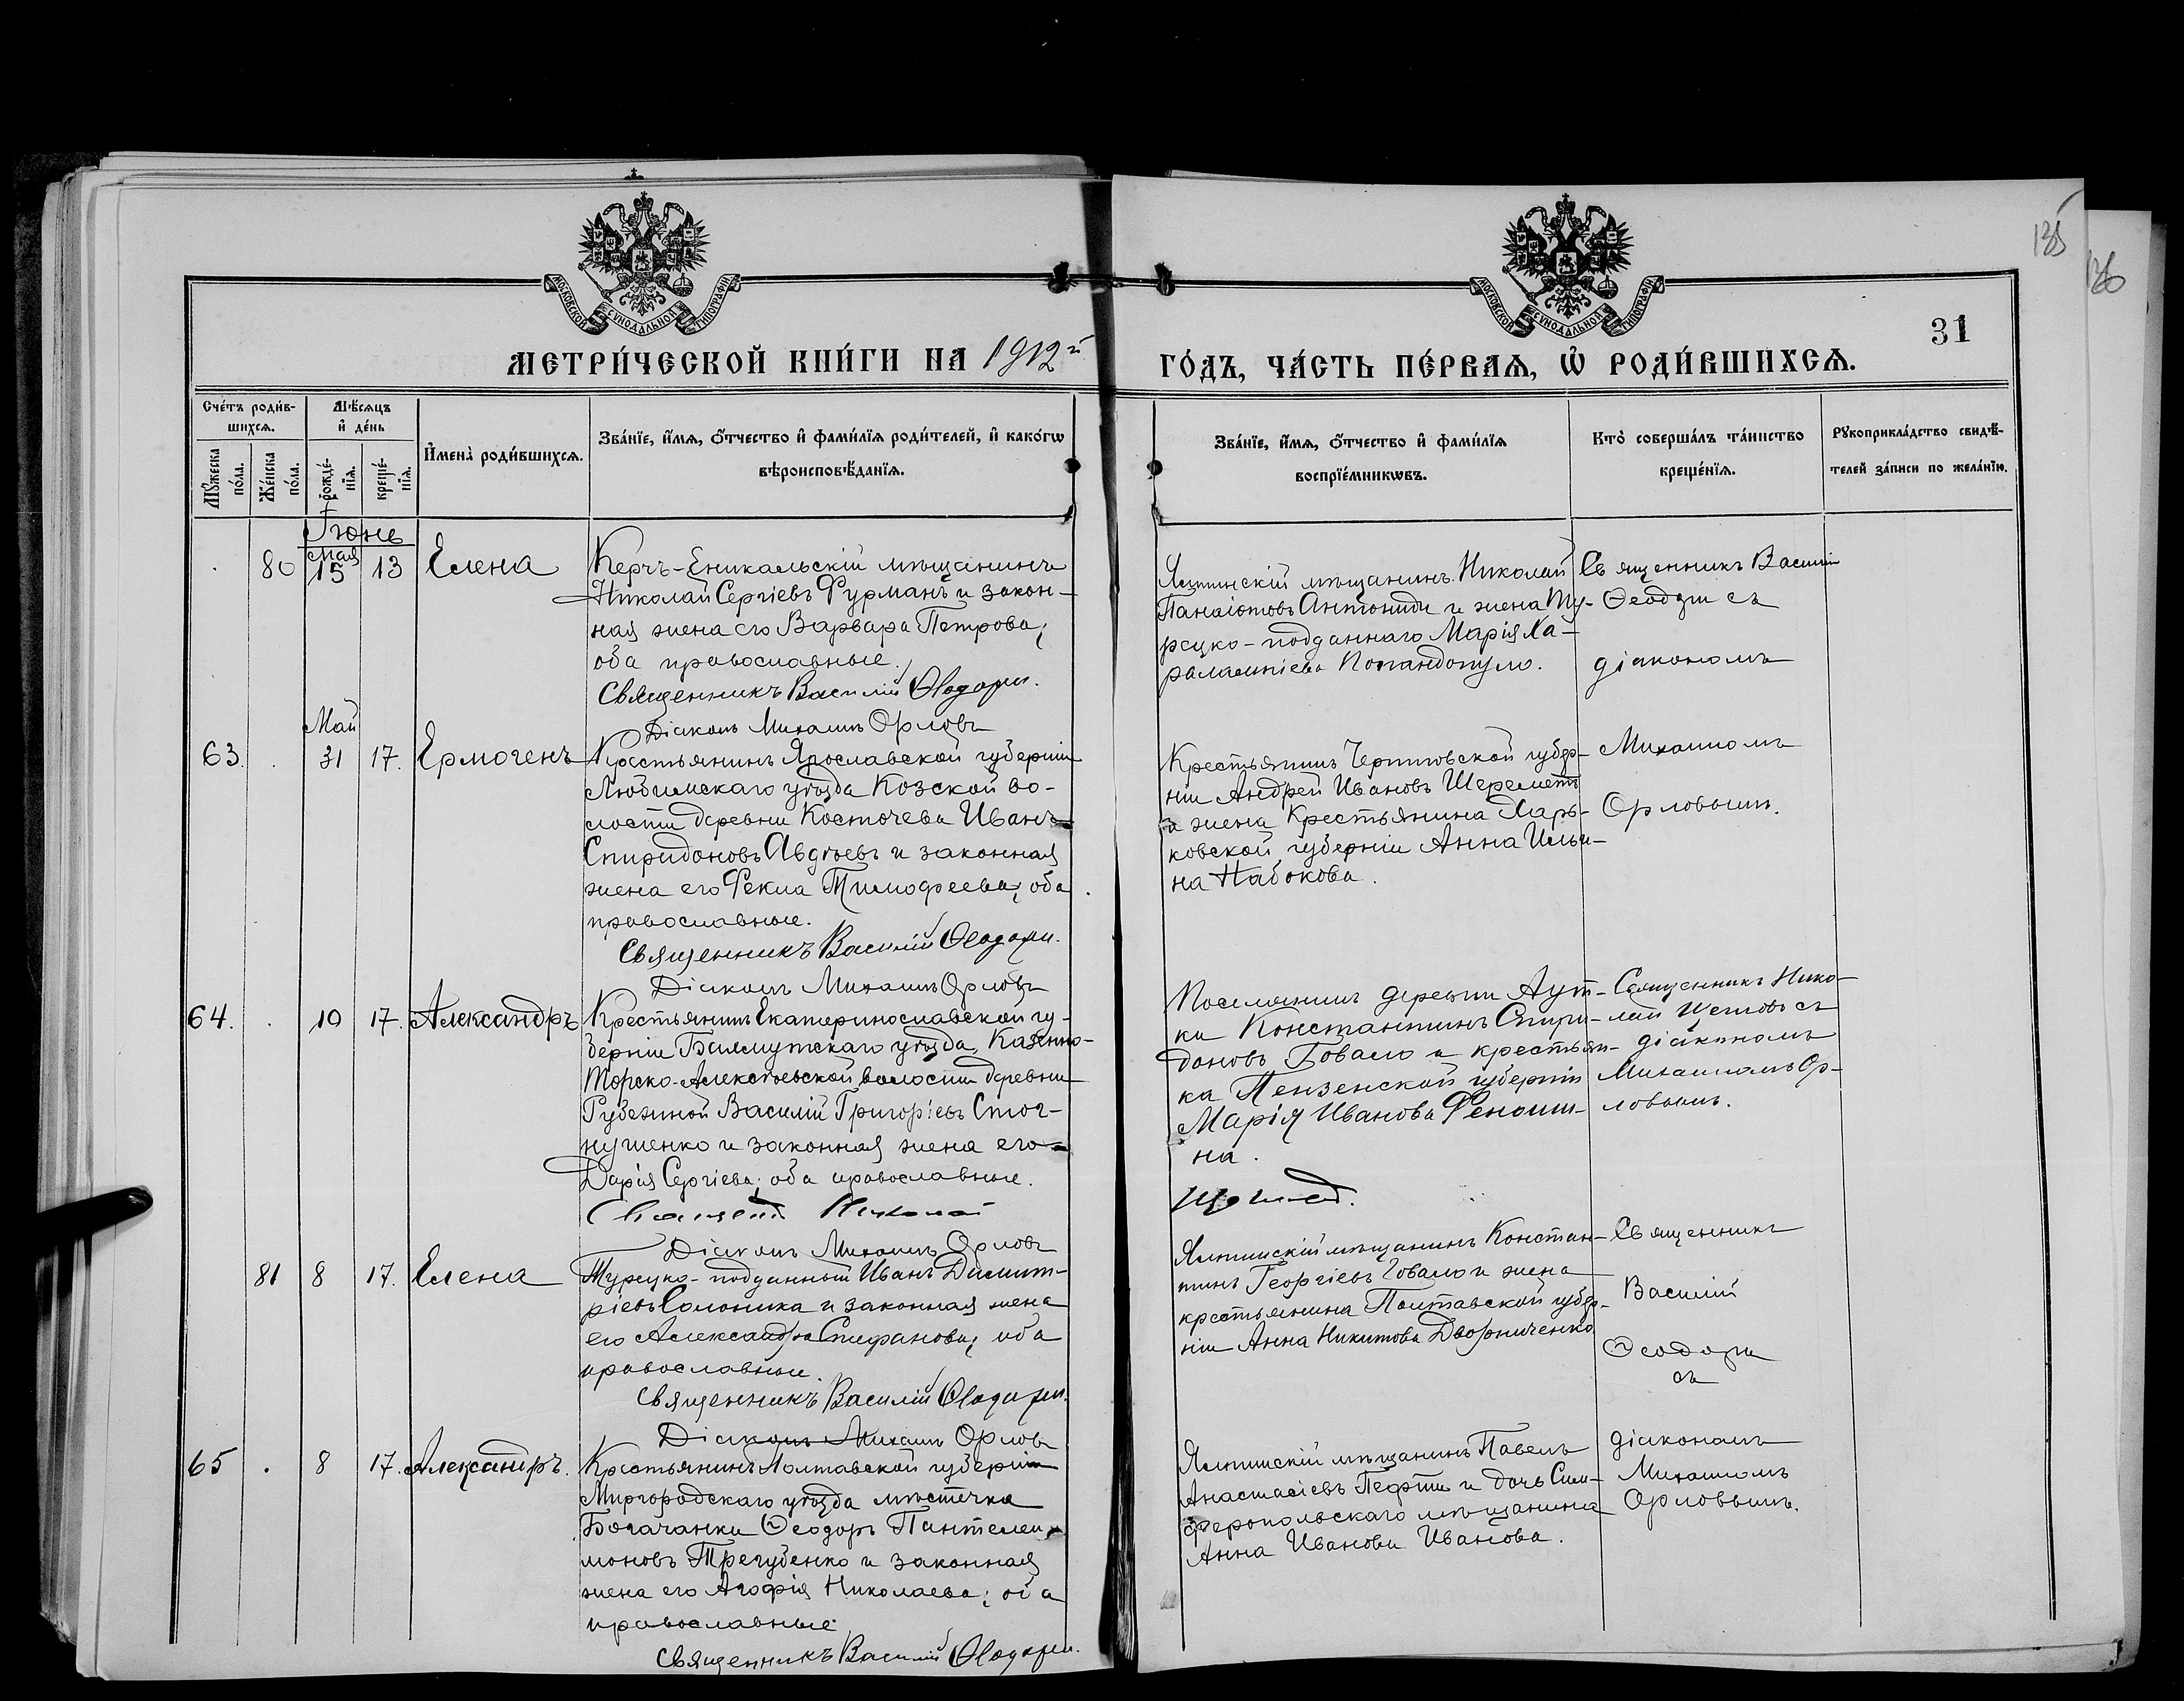 135
136
МОСКОВСКОЙ СѴНОДАЛЬНОЙ ТИПОГРАФІИ
МОСКОВСКОЙ СѴНОДАЛЬНОЙ ТИПОГРАФІИ
31
МЕТРИ́ЧЕСКОЙ КНИ́ГИ НА 1912й
ГО́ДЪ, ЧА́СТЬ ПЕ́РВАѦ, Ѡ҆ РОДИ́ВШИХСѦ.
Сче́тъ роди́в-
шихсѧ.
Мѹ́жеска по́ла.
Же́нска по́ла.
Мѣ́сѧцъ
и҆ де́нь
рожде́-
нїѧ.
креще́-
нїѧ.
И҆мена̀ роди́вшихсѧ.
Зва́нїе, и҆́мѧ, ѻ҆́тчество и҆ фами́лїѧ роди́телей, и҆ како́гѡ
вѣроисповѣ́данїѧ.
Зва́нїе, и҆́мѧ, ѻ҆́тчество и҆ фами́лїѧ
воспрїе́мникѡвъ.
Кто̀ соверша́лъ та́инство
креще́нїѧ.
Рѹкоприкла́дство свидѣ́-
телей за́писи по жела́нїю.
Іюнь
Мая
80 15 13 Елена
Керчъ-Еникальскій мѣщанинъ
Николай Сергіевъ Фурманъ и закон-
ная жена его Варвара Петрова;
оба православные.
Священникъ Василій Ѳеодори.
Діаконъ Михаилъ Орловъ
Ялтинскій мѣщанинъ Николай
Панаіотовъ Антониди и жена Ту-
рецко-подданнаго Марія Ха-
ралампіева Попандопуло.
Священникъ Василій
Ѳеодори съ
діакономъ
Май
63. 31 17. Ермогенъ
Крестьянинъ Ярославской губерніи
Любимскаго уѣзда Козской во-
лости деревни Косточева Иванъ
Спиридоновъ Авдѣевъ и законная
жена его Фекла Тимофеева; оба
православные.
Священникъ Василій Ѳеодори.
Діаконъ Михаилъ Орловъ
Крестьянинъ Черниговской губер-
ніи Андрей Ивановъ Шереметъ
и жена Крестьянина Харь-
ковской губерніи Анна Ильи-
на Набокова.
Михаиломъ
Орловымъ.
64. 10 17. Александръ
Крестьянинъ Екатеринославской гу-
берніи Бахмутскаго уѣзда, Казенно-
Торско-Алексѣевской волости деревни
Рубежной Василій Григоріевъ Стог-
нушенко и законная жена его
Дарія Сергіева; оба православные.
Николай
Діаконъ Михаилъ Орловъ
Поселянинъ деревни Аут-
ки Константинъ Спири-
доновъ Говало и крестьян-
ка Пензенской губерніи
Марія Иванова
на.
Священникъ Нико-
лай Щегловъ съ
діакономъ
Михаиломъ Ор-
ловымъ.
81 8 17. Елена
Турецко-подданный Иванъ Димит-
ріевъ Солоника и законная жена
его Александра Стефанова; оба
православные.
Священникъ Василій Ѳеодори.
Діаконъ Михаилъ Орловъ
Ялтинскій мѣщанинъ Констан-
тинъ Георгіевъ Говало и жена
крестьянина Полтавской губер-
ніи Анна Никитова Дворниченко
Священникъ
Василій
Ѳеодори
съ
65 8 17. Александръ.
Крестьянинъ Полтавской губерніи
Миргородскаго уѣзда мѣстечка
Богачанки Ѳеодоръ Пантелеи-
моновъ Трегубенко и законная
жена его Агафія Николаева; оба
православные
Священникъ Василій Ѳеодори.
Ялтинскій мѣщанинъ Павелъ
Анастасіевъ Пефти и дочь Сим-
феропольскаго мѣщанина
Анна Иванова Иванова.
діакономъ
Михаиломъ
Орловымъ.